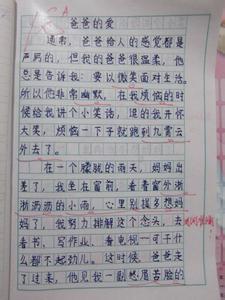 爸爸的爱
通常，爸爸给人的感觉都是
严厉的，但我的爸爸很温柔，他
总是告诉我：要以微笑面对生活。
所以他非常幽默，在我烦恼的时
候给我讲个小笑话，我的心就开怀
大笑，烦恼一下子就跑到九霄云
外去了。
在一个朦胧的雨天，妈妈出
差了，我坐在窗前，看着窗外淅
淅沥沥的小雨，心里别提多想妈
妈了，我努力排解这个念头，去
看书、写作业、看电视……可干什
么都不起劲儿。这时候，爸爸走
了过来，他见我一副愁眉苦脸的